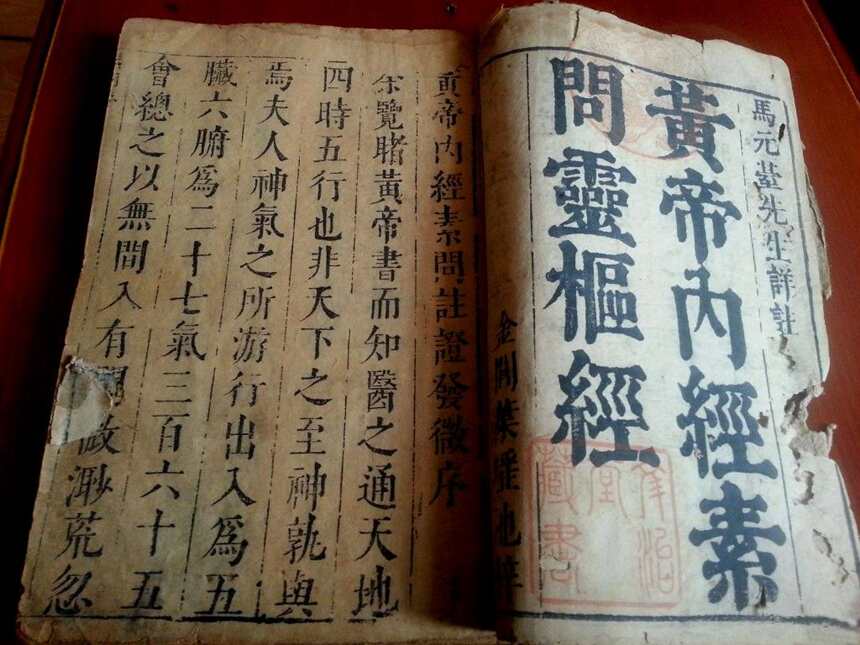 馬元臺先生詳註
黃帝內經素
問靈樞經
藏書
金閶葉
黃帝內經素問註證發微序
余覽睹黃帝書而知醫之通天地
四時五行也非天下之至神孰與
焉夫人神氣之所游行出入爲五
臟六腑爲二十七氣三百六十五
會總之以無間入有間微渺荒忽